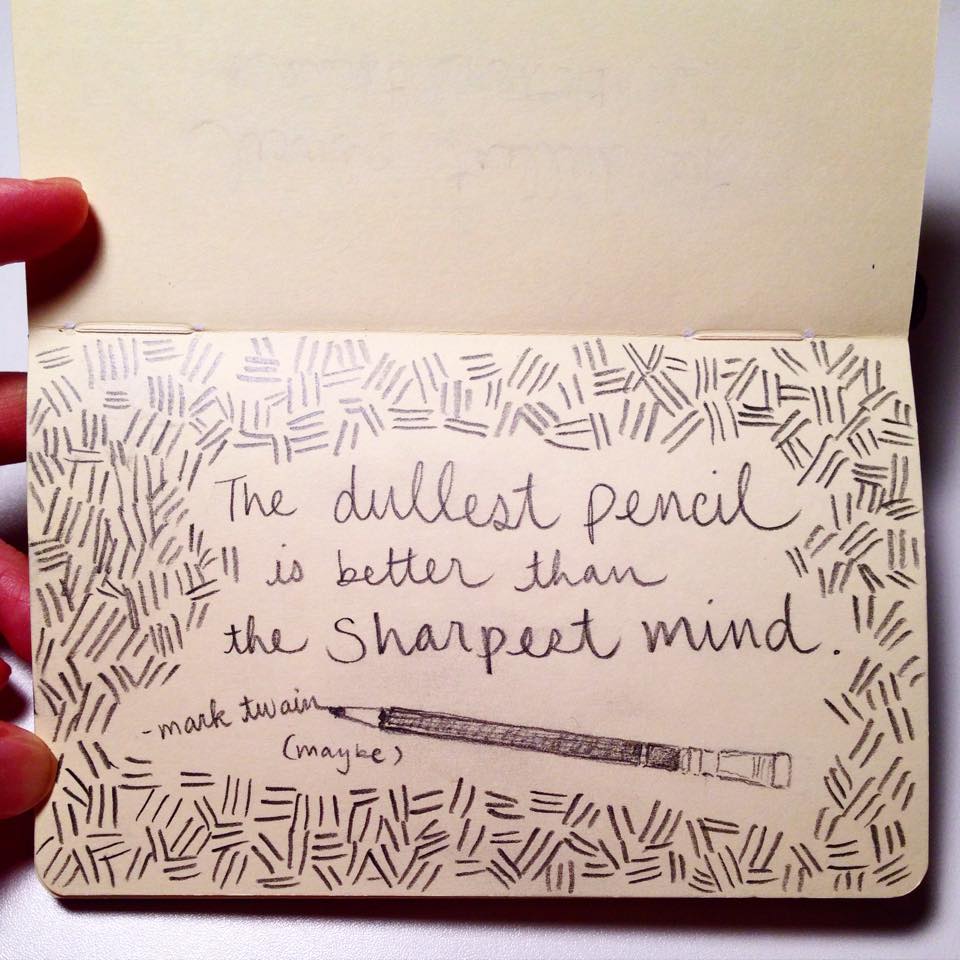 The dullest pencil
is better than
the sharpest mind.
-mark twain
(maybe)